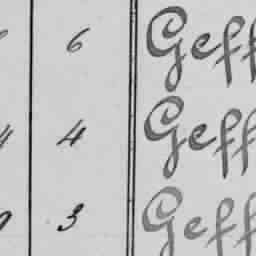 6 Geff
4 4 Geff
3 Geff